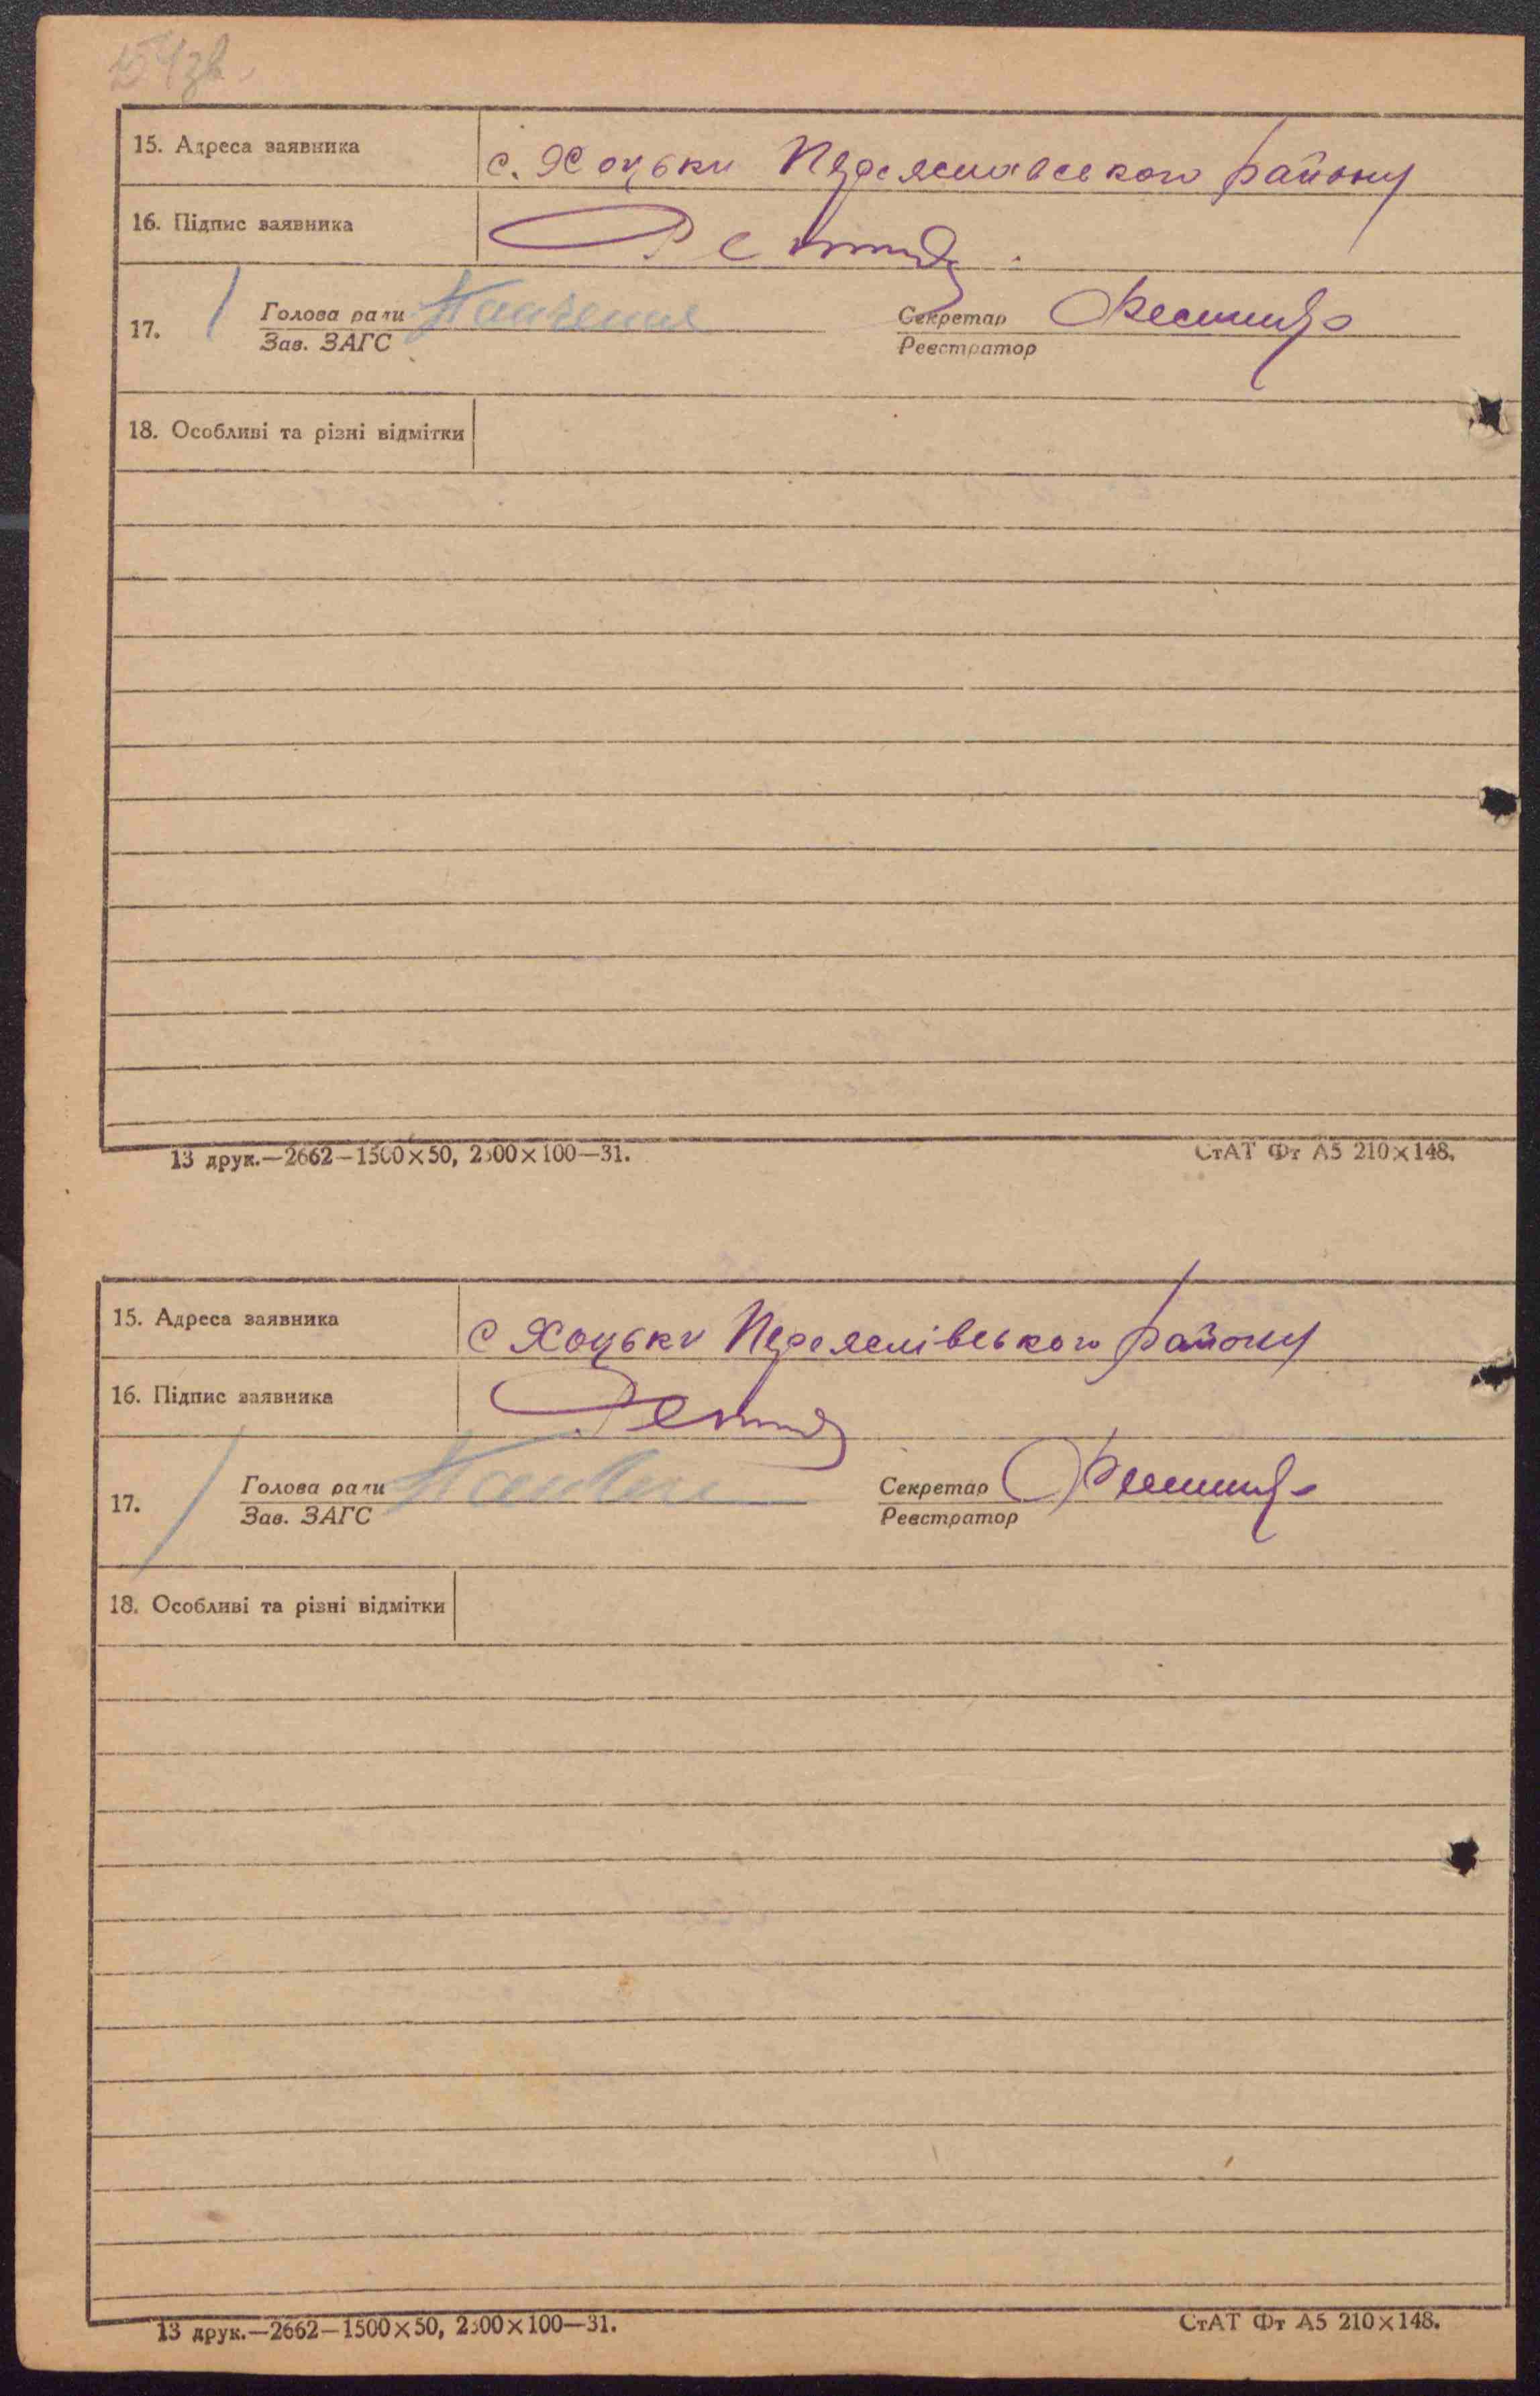 254зв.
15. Адреса заявника
с. Хоцьки Переяславського району
16. Підпис заявника
17.
Голова ради
Зав. ЗАГС
Секретар
Реєстратор
18. Особливі та різні відмітки
13 друк.—2662—1500×50, 2500×100—31.
СтАТ Фт А5 210×148.
15. Адреса заявника
с Хоцьки Переяслівського району
16. Підпис заявника
17.
Голова ради
Зав. ЗАГС
Секретар
Реєстратор
18. Особливі та різні відмітки
13 друк.—2662—1500×50, 2500×100—31.
СтАТ Фт А5 210×148.